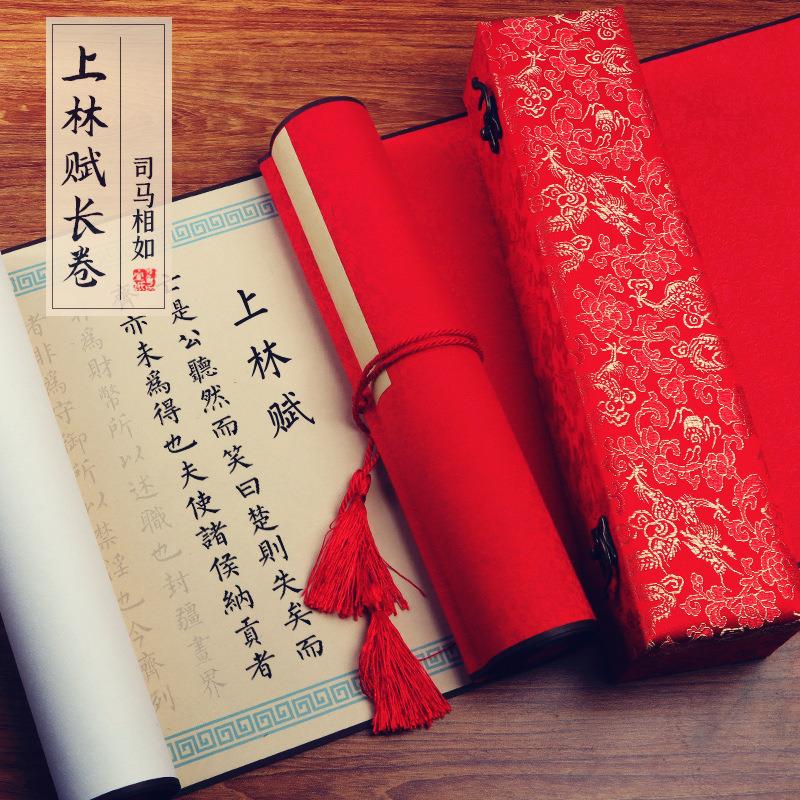 上林赋长卷
司马相如
上林赋
是公聽然而笑曰楚則失矣而
齊亦未爲得也夫使諸侯納貢者
非爲財幣所以述職也封疆畫界
者非爲守御所以禁淫也今齊列